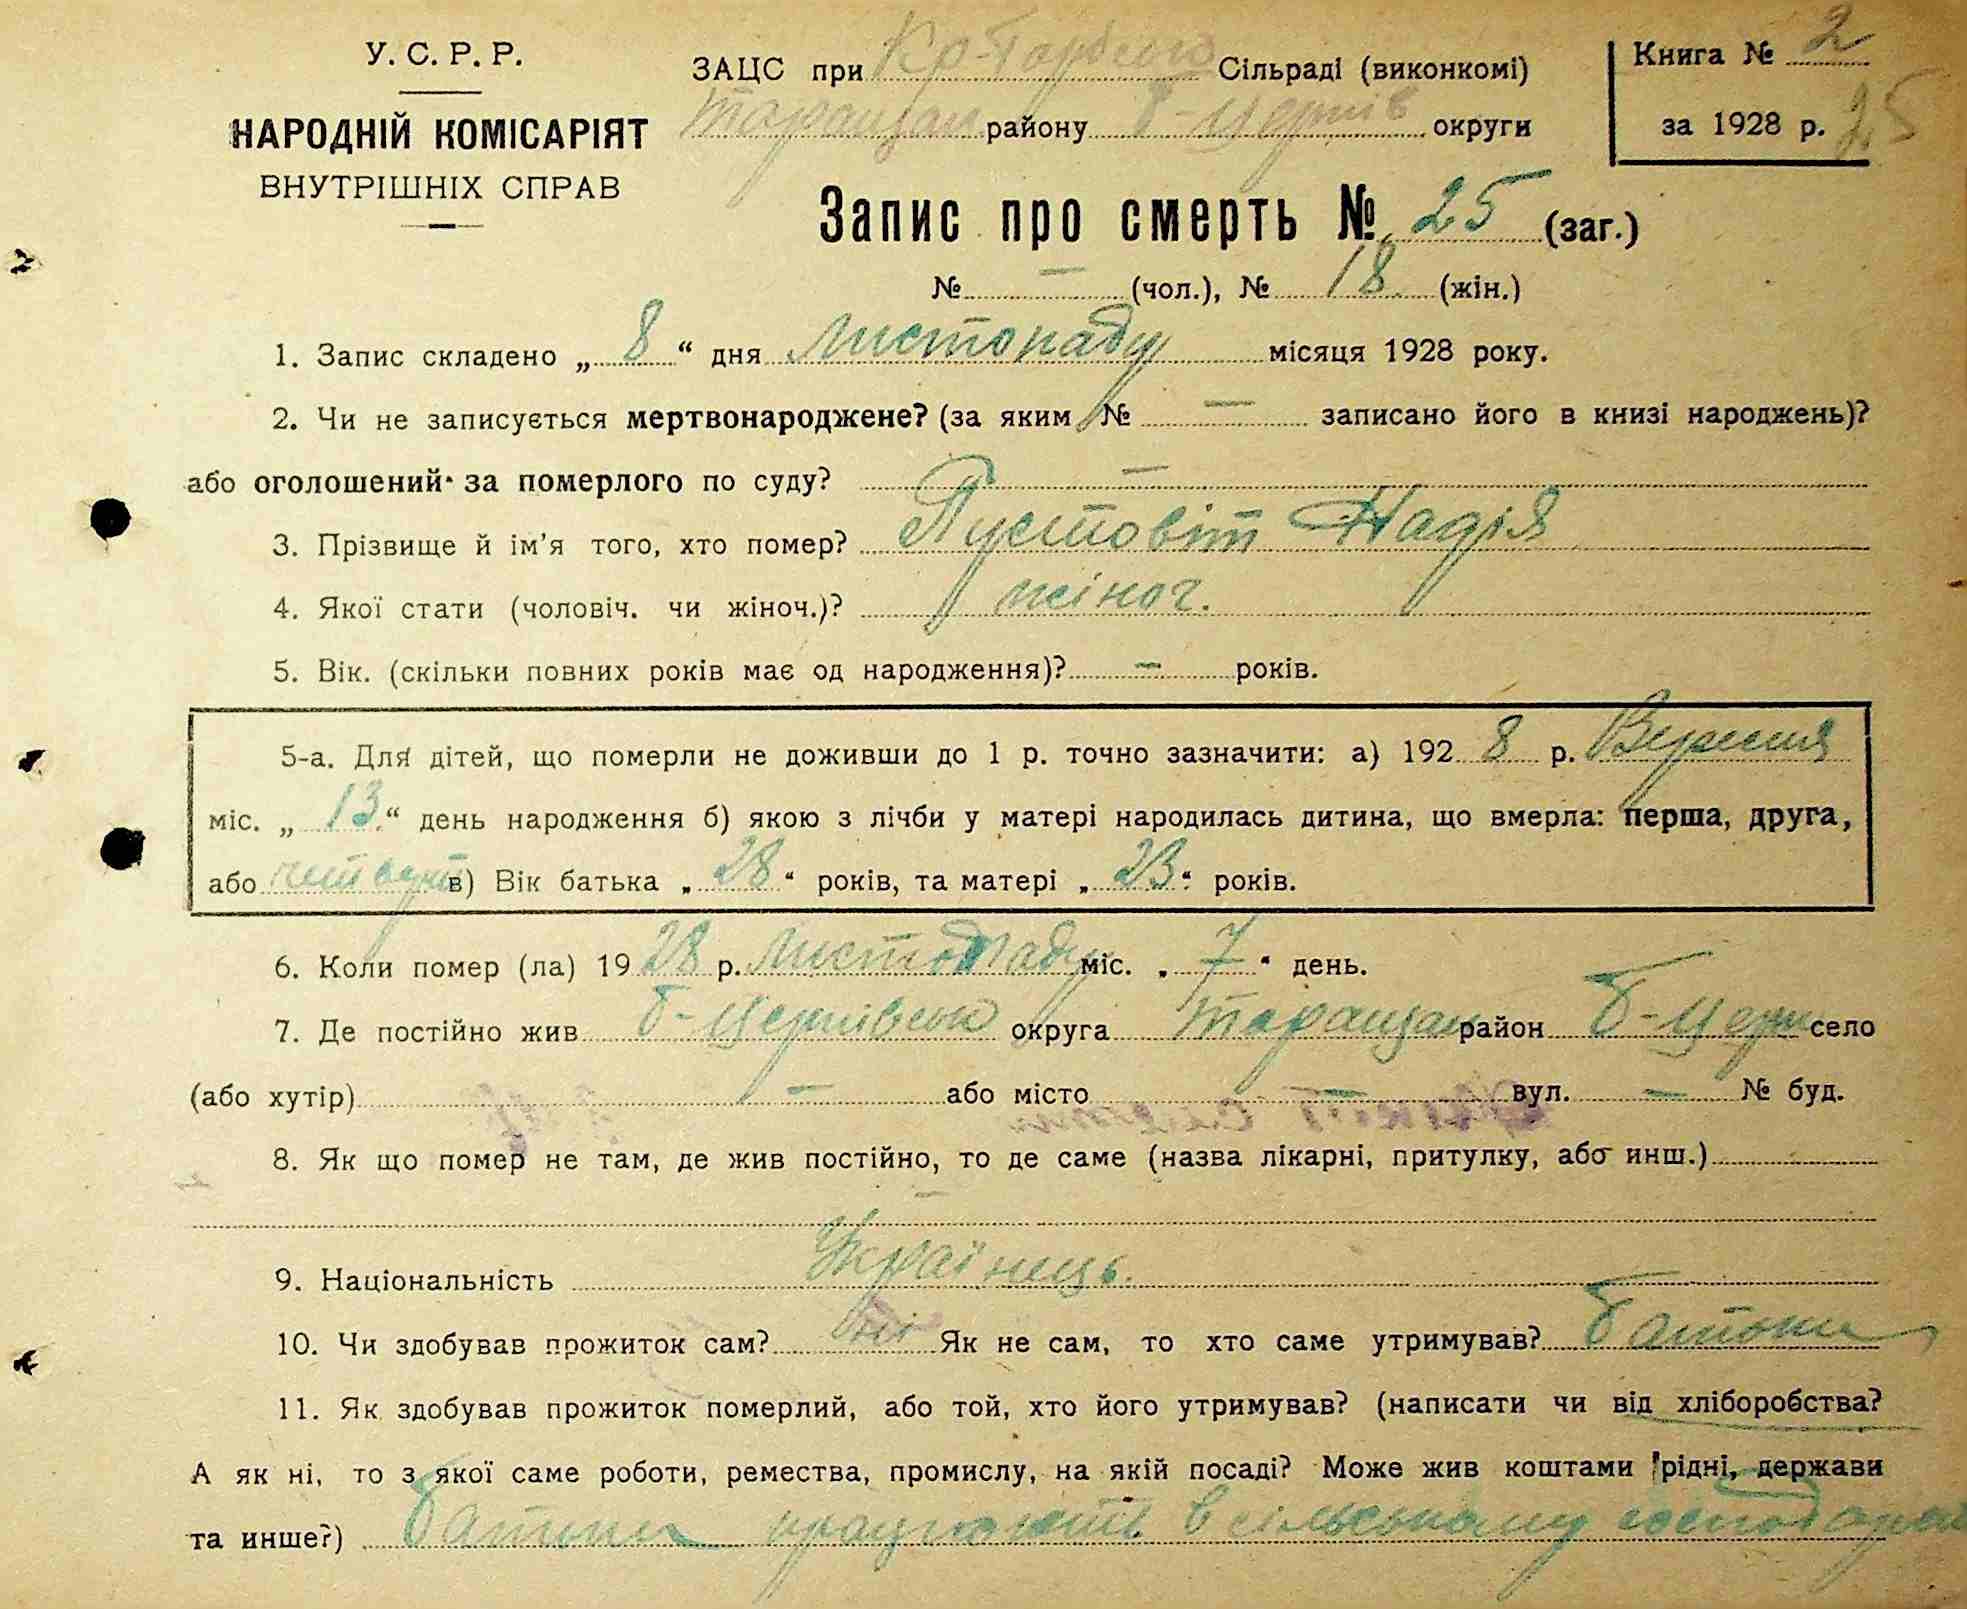 У. С. Р. Р.
НАРОДНІЙ КОМІСАРІЯТ
ВНУТРІШНІХ СПРАВ
ЗАЦС при Сільраді (виконкомі)
Таращан району Б-Церків округи
Книга № 2
за 1928 р. 25
Запис про смерть № 25 (заг.)
№ — (чол.), № 18 (жін.)
1. Запис складено „ 8 “ дня листопаду місяця 1928 року.
2. Чи не записується мертвонароджене? (за яким № — записано його в книзі народжень)?
або оголошений за померлого по суду? —
3. Прізвище й ім’я того, хто помер? Пустовіт Надія
4. Якої стати (чоловіч. чи жіноч.)? жіноч.
5. Вік. (скільки повних років має од народження)? — років.
5-а. Для дітей, що померли не доживши до 1 р. точно зазначити: а) 192 8 р. Вересня
міс. „ 13 “ день народження б) якою з лічби у матері народилась дитина, що вмерла: перша, друга,
або четверт в) Вік батька „ 28 “ років, та матері „ 23 “ років.
6. Коли помер (ла) 19 28 р. листопаду міс. „ 7 “ день.
7. Де постійно жив Б-Церківська округа Таращан район Б-Церк село
(або хутір) — або місто — вул. — № буд.
8. Як що помер не там, де жив постійно, то де саме (назва лікарні, притулку, або инш.)
—
9. Національність Українець.
10. Чи здобував прожиток сам? ні Як не сам, то хто саме утримував? батьки
11. Як здобував прожиток померлий, або той, хто його утримував? (написати чи від хліборобства?
А як ні, то з якої саме роботи, ремества, промислу, на якій посаді? Може жив коштами рідні, держави
та инше?) батьки працюють в сільському